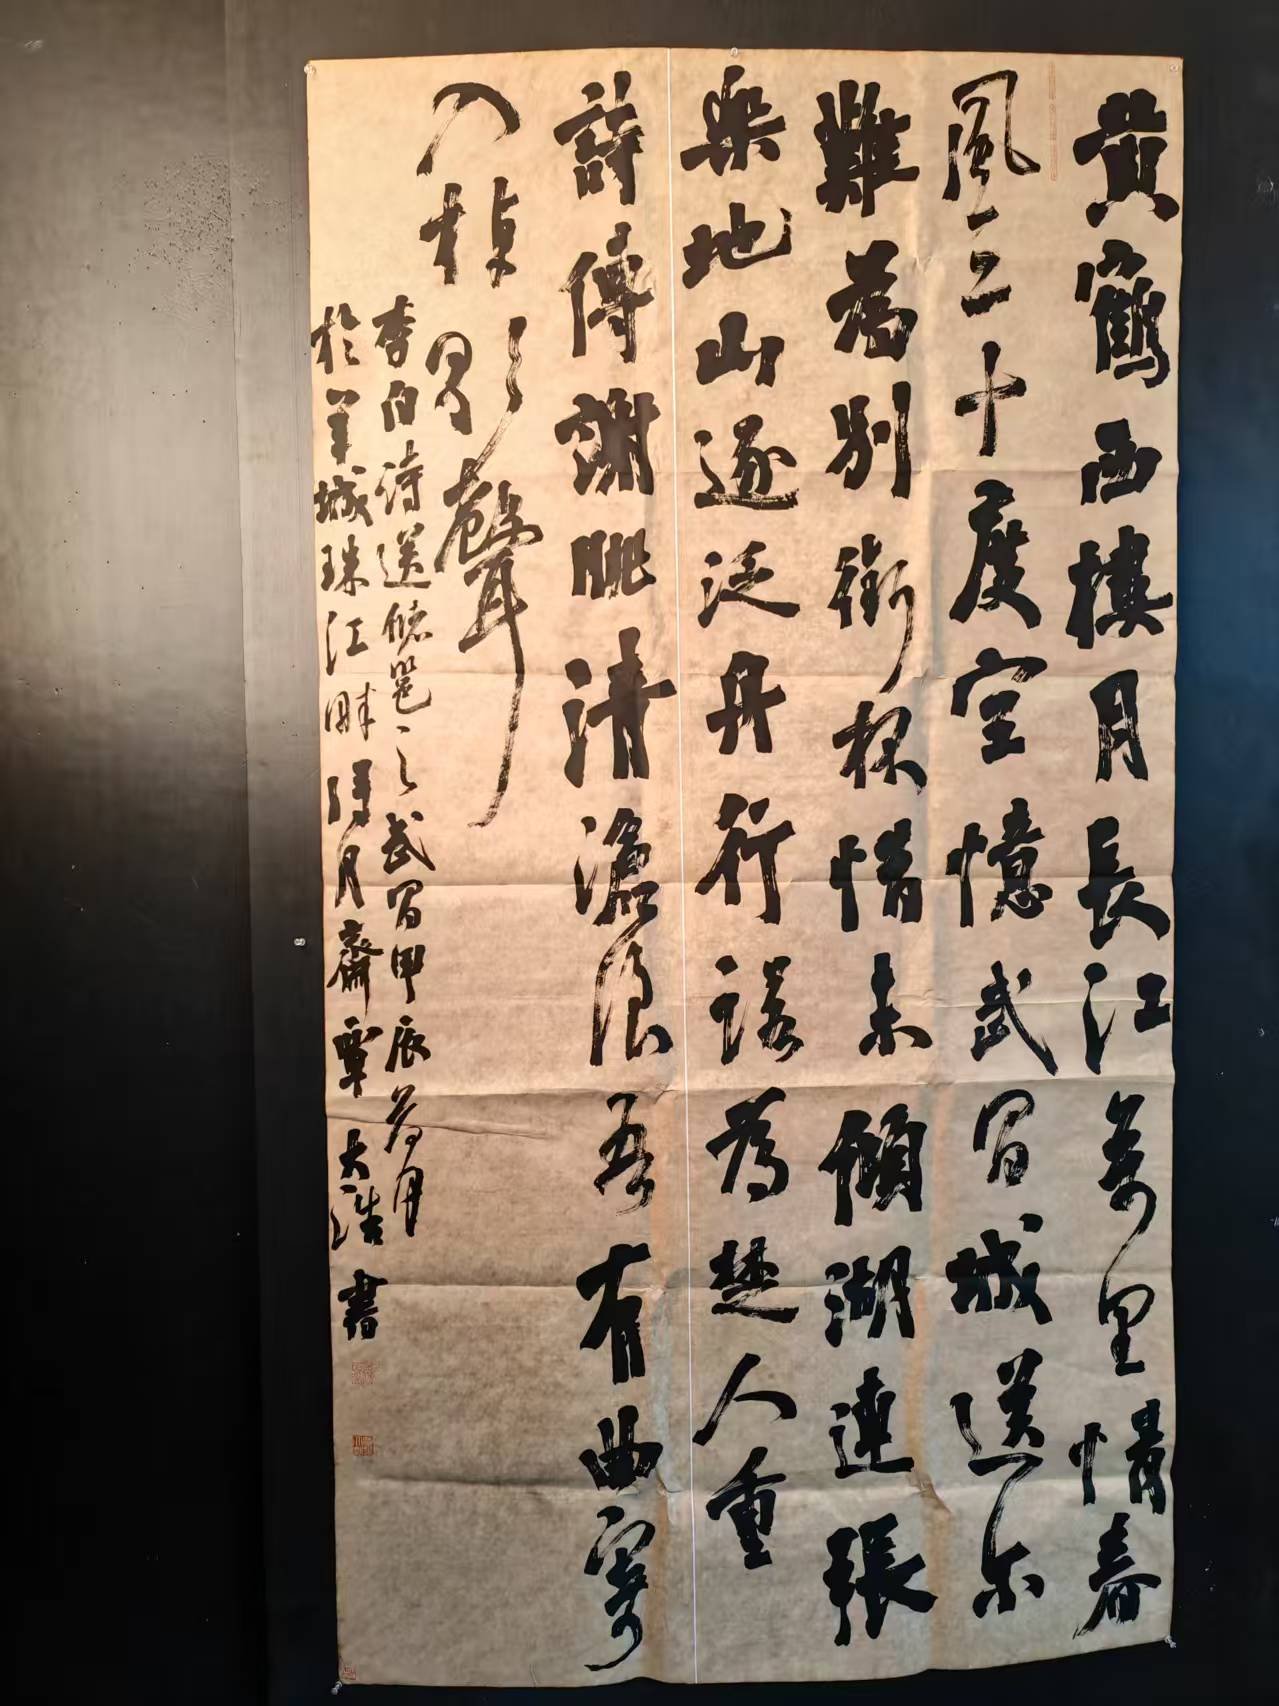 黃鶴西樓月長江萬里情春
風三十度空憶武昌城送尔
難為別銜杯惜未傾湖連張
樂地山逐泛舟行諾為楚人重
詩傳謝朓清滄浪吾有曲寄
入棹歌聲
李白詩送儲邕之武昌甲辰荷月
於羊城珠江畔得月齋覃大浩書